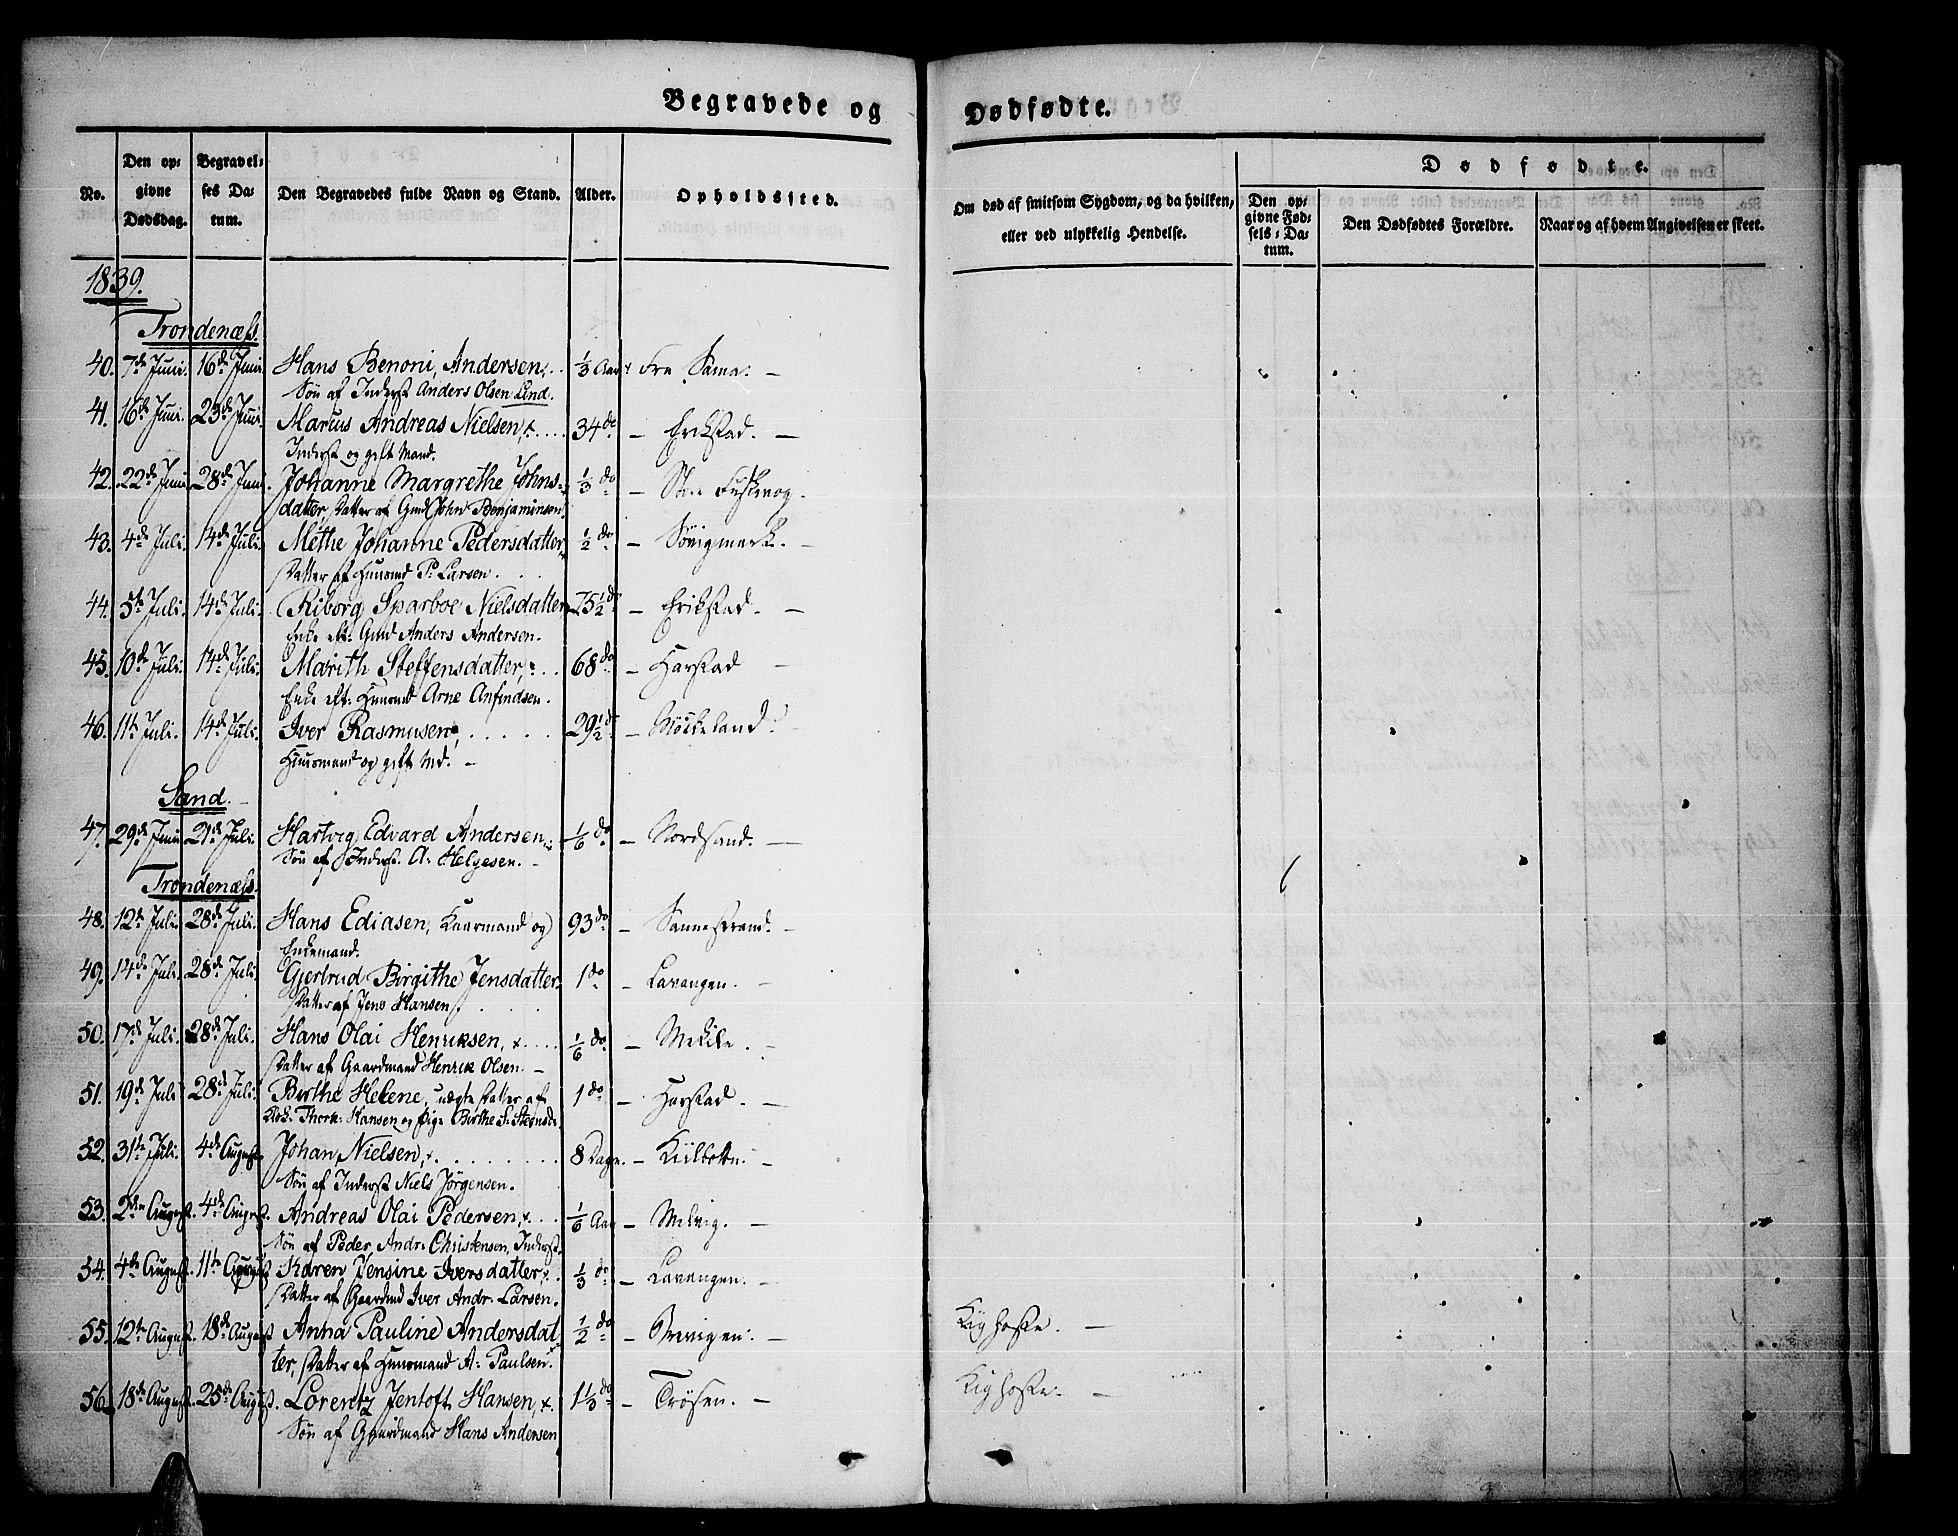 Begravede og Dødfødte.
No. Den opgivne Dødsdag. Begravelses Datum. Den Begravedes fulde Navn og Stand. Alder. Opholdssted. Om død af smitsom Sygdom, og da hvilken, eller ved ulykkelig Hendelse. Dødfødte. Den opgivne Fødsels-Datum. Den Dødfødtes Forældre. Naar og af hvem Angivelsen er skeet.
1839.
Trondenæss.
40. 7de Juni. 16de Juni. Hans Benoni Andersen, 1/3 Aar Fra Sama. —
Søn af Inderst Anders Olsen Lind.
41. 16de Juni. 23de Juni. Marcus Andreas Nielsen, 34 do — Erikstad. —
Inderst og gift Mand.
42. 22de Juni. 28de Juni. Johanne Margrethe Johns- 1/3 do —
datter, Datter af Gmd John Benjaminsen.
43. 4de Juli. 14de Juli. Methe Johanne Pedersdatter, 1/2 do — Sövigmark. —
Datter af Huusmd P. Larsen.
44. 5te Juli. 14de Juli. Riborg Sparboe Nielsdatter, 75 1/2 do — Erikstad. —
Enke eft: Gmd Anders Andersen.
45. 10de Juli. 14de Juli. Marith Steffensdatter, 68 do — Harstad —
Enke eft: Huusmd Arne Anfindsen.
46. 11te Juli. 14de Juli. Iver Rasmusen, 29 1/2 do — Møkeland.
Huusmand og gift Md. —
Sand.
47. 29de Juni 21de Juli. Hartvig Edvard Andersen 1/6 do — Nordsand. —
Søn af Inderst. A: Helgesen. —
Trondenæss.
48. 12te Juli. 28de Juli. Hans Ediasen, Kaarmand og 93 do — Sannestrand. —
Enkemand.
49. 14de Juli. 28de Juli. Gjertrud Birgithe Jensdatter. 1 do — Lavangen. —
Datter af Jens Hansen.
50. 17de Juli. 28de Juli. Hans Olai Henriksen, 1/6 do — —
Datter af Gaardmand Henrik Olsen. —
51. 19de Juli 28de Juli. Birthe Helene, uægte Datter af 1 do — Harstad. —
Thork: Hansen og Pige Birthe S:
52. 31te Juli. 4de August. Johan Nielsen, 8 Dage. — Kiilbotn. —
Søn af Inderst Niels Jörgensen.
53. 2den August. 4de August. Andreas Olai Pedersen, 1/6 Aar — Melvig. —
Søn af Peder Andr: Christensen, Inderst.
54. 4de August. 11te August Karen Jensine Iversdatter, 1/3 do — Lavangen. —
Datter af Gaardmd Iver Andr. Larsen.
55. 12te August. 18de August Anna Pauline Andersdat 1/2 do — Brevigen. — Kighoste. —
ter, Datter af Huusmand A: Paulsen.
56. 18de August. 25de August. Lorentz Jentoft Hansen, 1 1/3 do — Trøsen. — Kighoste. —
Søn af Gaardmand Hans Andersen